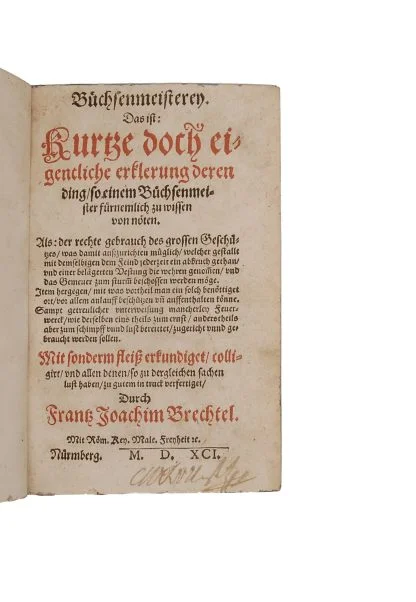 Büchsenmeisterey.
Das ist:
Kurtze doch ei-
gentliche erklerung deren
ding/ so einem Büchsenmei-
ster fürnemlich zu wissen
von nöten.
Als: der rechte gebrauch des grossen Geschü-
tzes/ was damit auszurichten müglich/ welcher gestalt
mit demselbigen dem Feind jederzeit ein abbruch gethan/
vnd einer belägerten Vestung die wehrn genom̄en/ vnd
das Gemeuer zum sturm̄ beschossen werden möge.
Item hergegen/ mit was vortheil man ein solch benötiget
ort/ vor allem anlauff beschützen vn̄ auffenthalten könne.
Sampt getreulicher vnterweisung mancherley Feuer-
werck/ wie derselben eins theils zum ernst/ anderstheils
aber zum schimpff vnnd lust bereittet/ zugericht vnnd ge-
braucht werden sollen.
Mit sonderm fleiß erkundiget/ colli-
girt/ vnd allen denen/ so zu dergleichen sachen
lust haben/ zu gutem in truck verfertiget/
Durch
Frantz Joachim Brechtel.
Mit Röm. Key. Maie. Freyheit ꝛc.
Nürmberg. M. D. XCI.